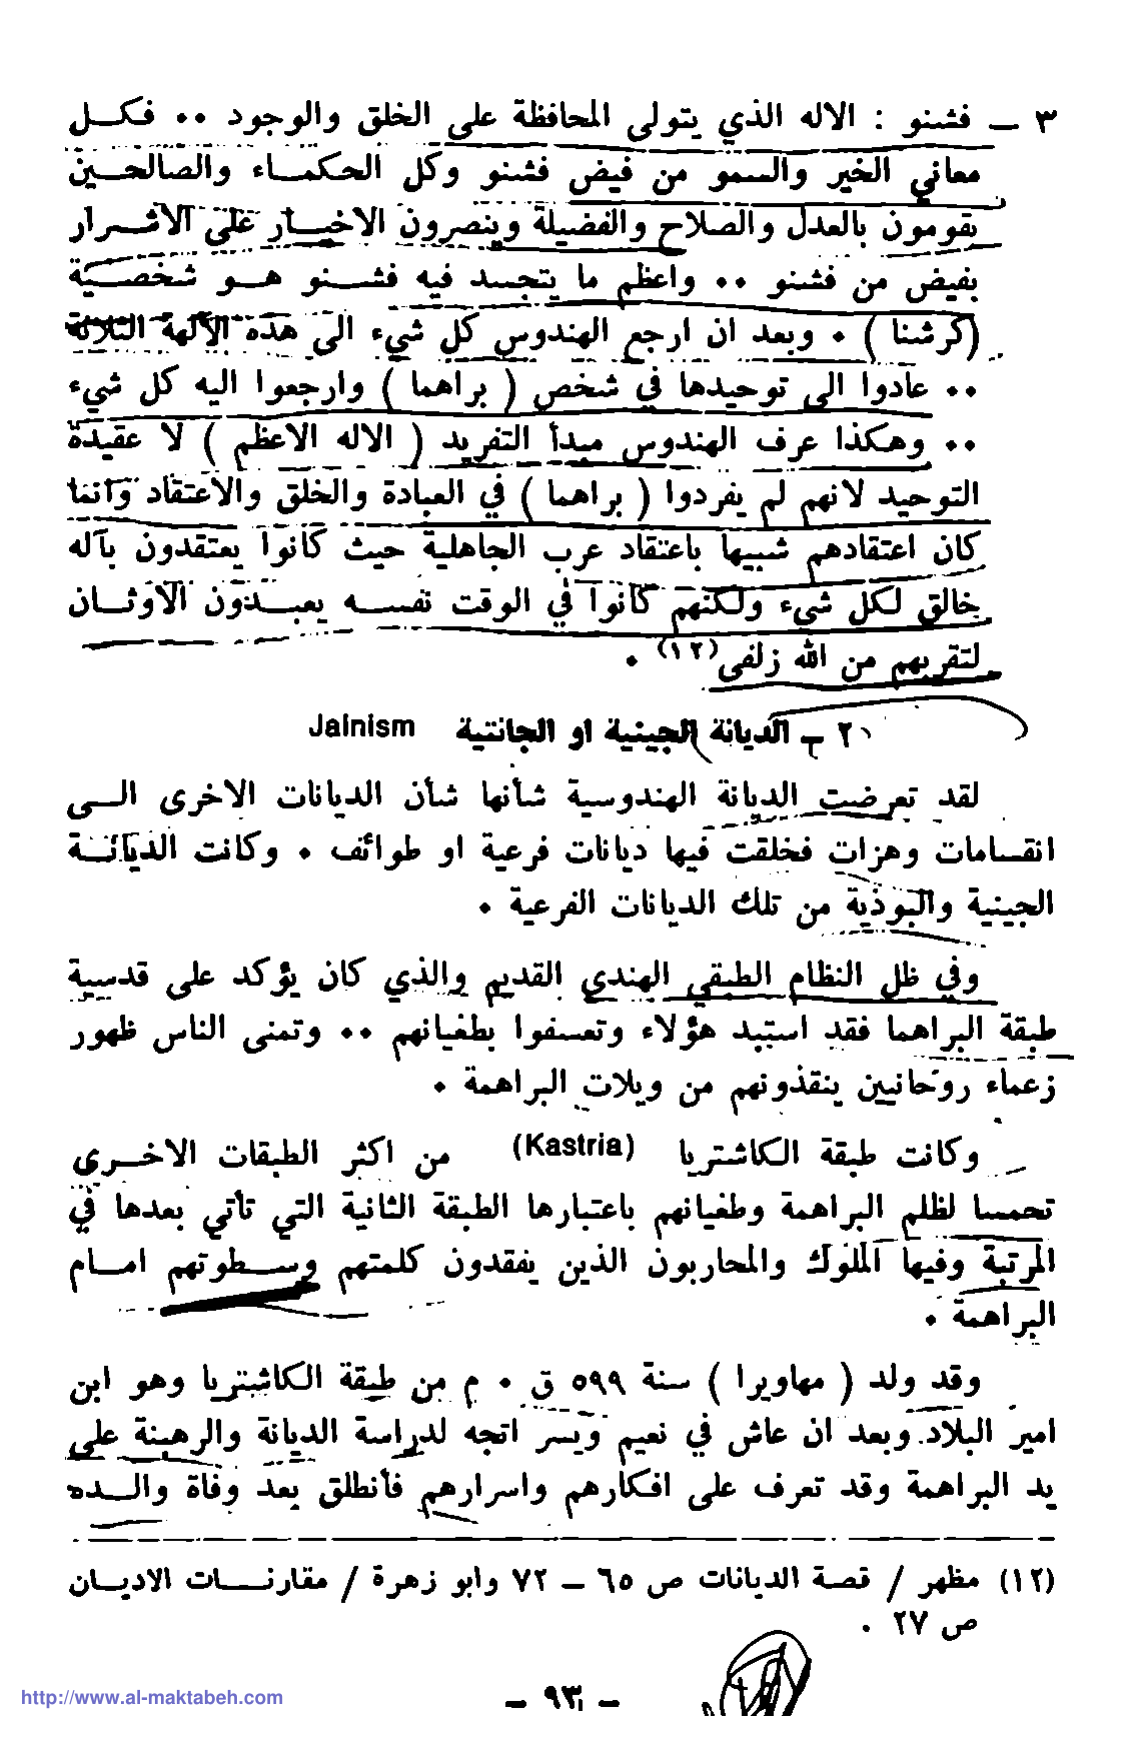 ٣ ــ فشنو : الاله الذي يتولى المحافظة على الخلق والوجود ٠٠ فكـــل
معاني الخير والسمو من فيض فشنو وكل الحكمــاء والصالحـــين
يقومون بالعدل والصلاح والفضيلة وينصرون الاخيـــار على الاشـــرار
بفيض من فشنو ٠٠ واعظم ما يتجسد فيه فشـــنو هـــو شخصـــية
(كرشنا ) ٠ وبعد ان ارجع الهندوس كل شيء الى هذه الآلهة الثلاثة
٠٠ عادوا الى توحيدها في شخص ( براهما ) وارجعوا اليه كل شيء
٠٠ وهكذا عرف الهندوس مبدأ التفريد ( الاله الاعظم ) لا عقيدة
التوحيد لانهم لم يفردوا ( براهما ) في العبادة والخلق والاعتقاد وانما
كان اعتقادهم شبيها باعتقاد عرب الجاهلية حيث كانوا يعتقدون بآله
خالق لكل شيء ولكنهم كانوا في الوقت نفســـه يعبـــدون الاوثـــان
لتقربهم من الله زلفى(١٢) ٠
٢ ــ الديانة الجينية او الجانتية Jainism
لقد تعرضت الديانة الهندوسية شأنها شأن الديانات الاخرى الـــى
انقســامات وهزات فخلقت فيها ديانات فرعية او طوائف ٠ وكانت الديانـــة
الجينية والبوذية من تلك الديانات الفرعية ٠
وفي ظل النظام الطبقي الهندي القديم والذي كان يؤكد على قدسية
طبقة البراهما فقد استبد هؤلاء وتعسفوا بطغيانهم ٠٠ وتمنى الناس ظهور
زعماء روحانيين ينقذونهم من ويلات البراهمة ٠
وكانت طبقة الكاشتريا (Kastria) من اكثر الطبقات الاخـــرى
تحمسا لظلم البراهمة وطغيانهم باعتبارها الطبقة الثانية التي تأتي بعدها في
المرتبة وفيها الملوك والمحاربون الذين يفقدون كلمتهم وســـطوتهم امـــام
البراهمة ٠
وقد ولد ( مهاويرا ) سنة ٥٩٩ ق ٠ م من طبقة الكاشتريا وهو ابن
امير البلاد وبعد ان عاش في نعيم ويسر اتجه لدراسة الديانة والرهبنة على
يد البراهمة وقد تعرف على افكارهم واسرارهم فأنطلق بعد وفاة والـــده
(١٢) مظهر / قصة الديانات ص ٦٥ ــ ٧٢ وابو زهرة / مقارنـــات الاديـــان
ص ٢٧ ٠
http://www.al-maktabeh.com
ــ ٩٣ ــ